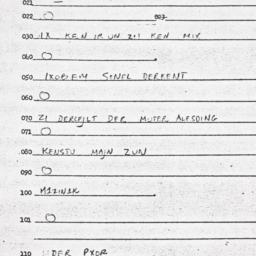 021
022 O 023
030 IX KEN IR UN ZII KEN MIR
040 O
050 IXOBEM SONEL DERKENT
060 O
070 ZI DERCEJLT DER MUTER ALESDING
071 O
080 KENSTU MAJN ZUN
090 O
100 MIZINIK
101 O
110 DER PXOR